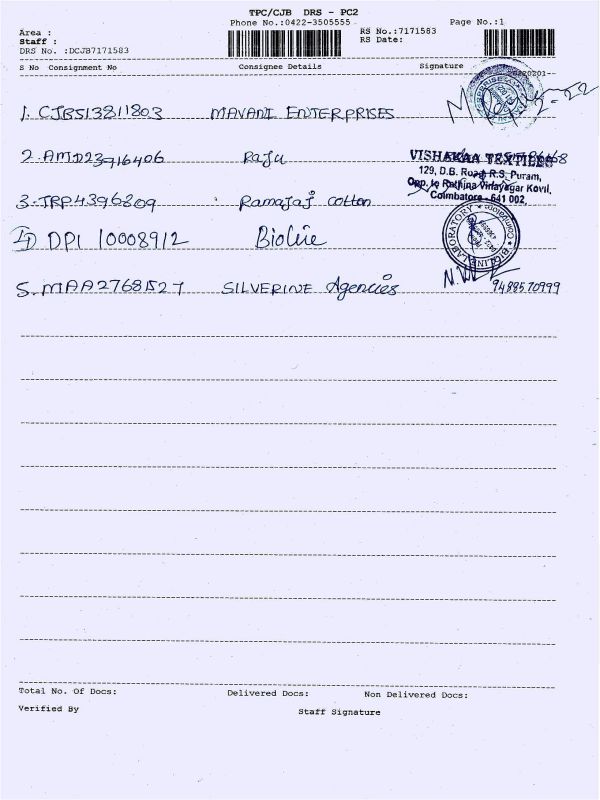 TPC/CJB DRS - PC2
Phone No.:0422-3505555
Page No.:1
Area :
Staff :
DRS No. :DCJB7171583
RS No.:7171583
RS Date:
S No Consignment No Consignee Details Signature
1. CJB513811803 MAVANI ENTERPRISES
2. AMD23916406 Raju
VISHAKAA TEXTILES
129, D.B. Road R.S. Puram,
Opp. to Rathina Vinayagar Kovil,
Coimbatore - 641 002.
3. TRP4396809 Ramajaj cotton
4) DPI 10008912 Bioline
BIOLINE LABORATORY * Coimbatore *
5. MAA27681527 SILVERINE Agencies 9488570999
Total No. Of Docs: Delivered Docs: Non Delivered Docs:
Verified By Staff Signature